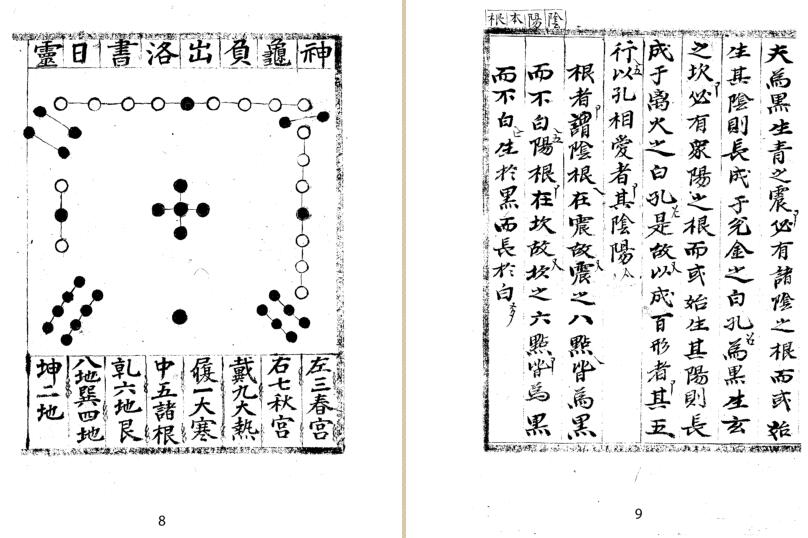 神龜負出洛書日靈
左三春宮
右七秋宮
戴九大熱
履一大寒
中五諸根
乹六地艮
八地巽四地
坤二地
8
陰陽本根
夫為黑生青之震必有諸陰之根而或始
生其陰則長成于兊金之白孔為黑生玄
之坎必有眾陽之根而或始生其陽則長
成于离火之白孔是故以成百形者其五
行以孔相愛者其陰陽
根者謂陰根在震故震之八點皆為黑
而不白陽根在坎故坎之六點皆為黑
而不白生於黑而長於白
9